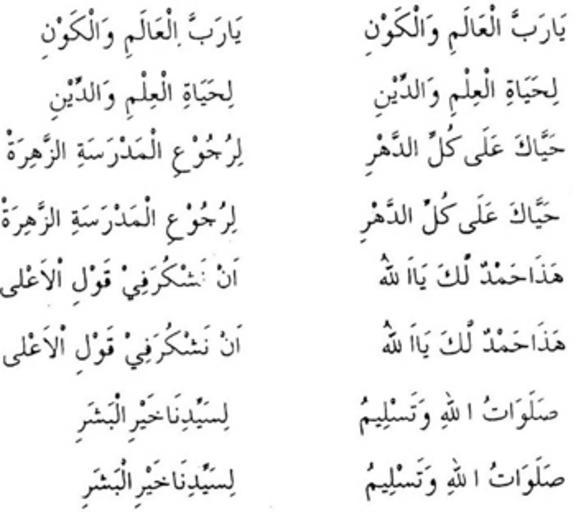 يَارَبَّ الْعَالَمِ وَالْكَوْنِ يَارَبَّ الْعَالَمِ وَالْكَوْنِ
لِحَيَاةِ الْعِلْمِ وَالدِّيْنِ لِحَيَاةِ الْعِلْمِ وَالدِّيْنِ
حَيَّاكَ عَلَى كُلِّ الدَّهْرِ لِرُجُوْعِ الْمَدْرَسَةِ الزَّهِرَةْ
حَيَّاكَ عَلَى كُلِّ الدَّهْرِ لِرُجُوْعِ الْمَدْرَسَةِ الزَّهِرَةْ
هَذَاحَمْدٌ لَّكَ يَااَ للهُ اَنْ نَشْكُرَفِيْ قَوْلِ اْلاَعْلى
هَذَاحَمْدٌ لَّكَ يَااَ للهُ اَنْ نَشْكُرَفِيْ قَوْلِ اْلاَعْلى
صَلَوَاتُ اللهِ وَتَسْلِيمُ لِسَيِّدِنَاخَيْرِ الْبَشَرِ
صَلَوَاتُ اللهِ وَتَسْلِيمُ لِسَيِّدِنَاخَيْرِ الْبَشَرِ